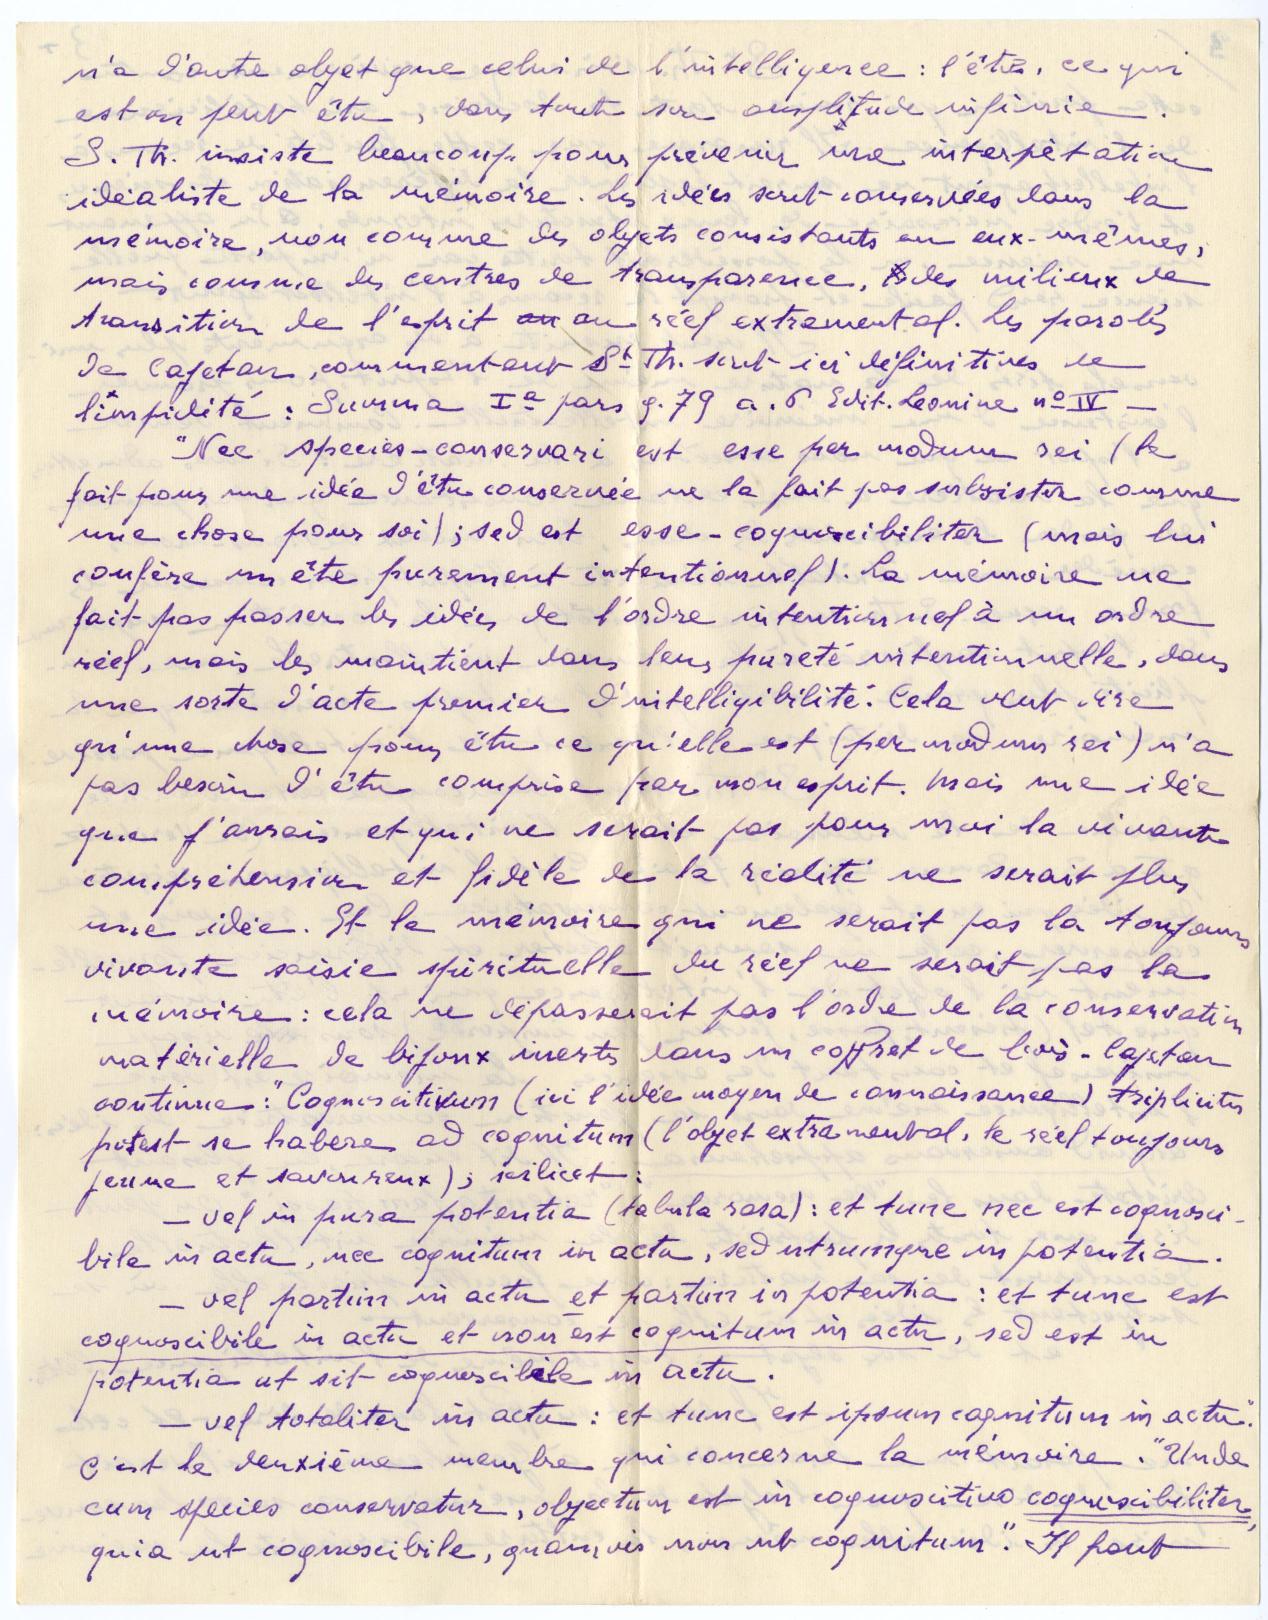 n'a d'autre objet que celui de l'intelligence : l'être, ce qui
est ou peut être, dans toute son amplitude infinie.
S. Th. insiste beaucoup pour prévenir une interpétation
idéaliste de la mémoire. Les idées sont conservées dans la
mémoire, non comme des objets consistants en eux-mêmes,
mais comme des centres de transparence, des milieux de
transition de l'esprit au réel extramental. Les paroles
de Cajetan, commentant St Th. sont ici définitives de
limpidité : Summa Ia pars q. 79 a. 6 Edit. Leonine no IV —
"Nec species-conservari est esse per modum rei (le
fait pour une idée d'être conservée ne la fait pas subsister comme
une chose pour soi) ; sed est esse-cognoscibiliter (mais lui
confère un être purement intentionnel). La mémoire ne
fait pas passer les idées de l'ordre intentionnel à un ordre
réel, mais les maintient dans leur pureté intentionnelle, dans
une sorte d'acte premier d'intelligibilité. Cela veut dire
qu'une chose pour être ce qu'elle est (per modum rei) n'a
pas besoin d'être comprise par mon esprit. Mais une idée
que j'aurais et qui ne serait pas pour moi la vivante
compréhension et fidèle de la réalité ne serait plus
une idée. Et la mémoire qui ne serait pas la toujours
vivante saisie spirituelle du réel ne serait pas la
mémoire : cela ne dépasserait pas l'ordre de la conservation
matérielle de bijoux inertes dans un coffret de bois - Cajetan
continue : "Cognoscitivum (ici l'idée moyen de connaissance) tripliciter
potest se habere ad cognitum (l'objet extramental, le réel toujours
jeune et savoureux) ; scilicet :
— vel in pura potentia (tabula rasa) : et tunc nec est cognosci-
bile in actu, nec cognitum in actu, sed utrumque in potentia.
— vel partim in actu et partim in potentia : et tunc est
cognoscibile in actu et non est cognitum in actu, sed est in
potentia ut sit cognoscibile in actu.
— vel totaliter in actu : et tunc est ipsum cognitum in actu".
C'est le deuxième membre qui concerne la mémoire. "Unde
cum species conservatur, objectum est in cognoscitivo cognoscibiliter,
quia ut cognoscibile, quamvis non ut cognitum". Il faut